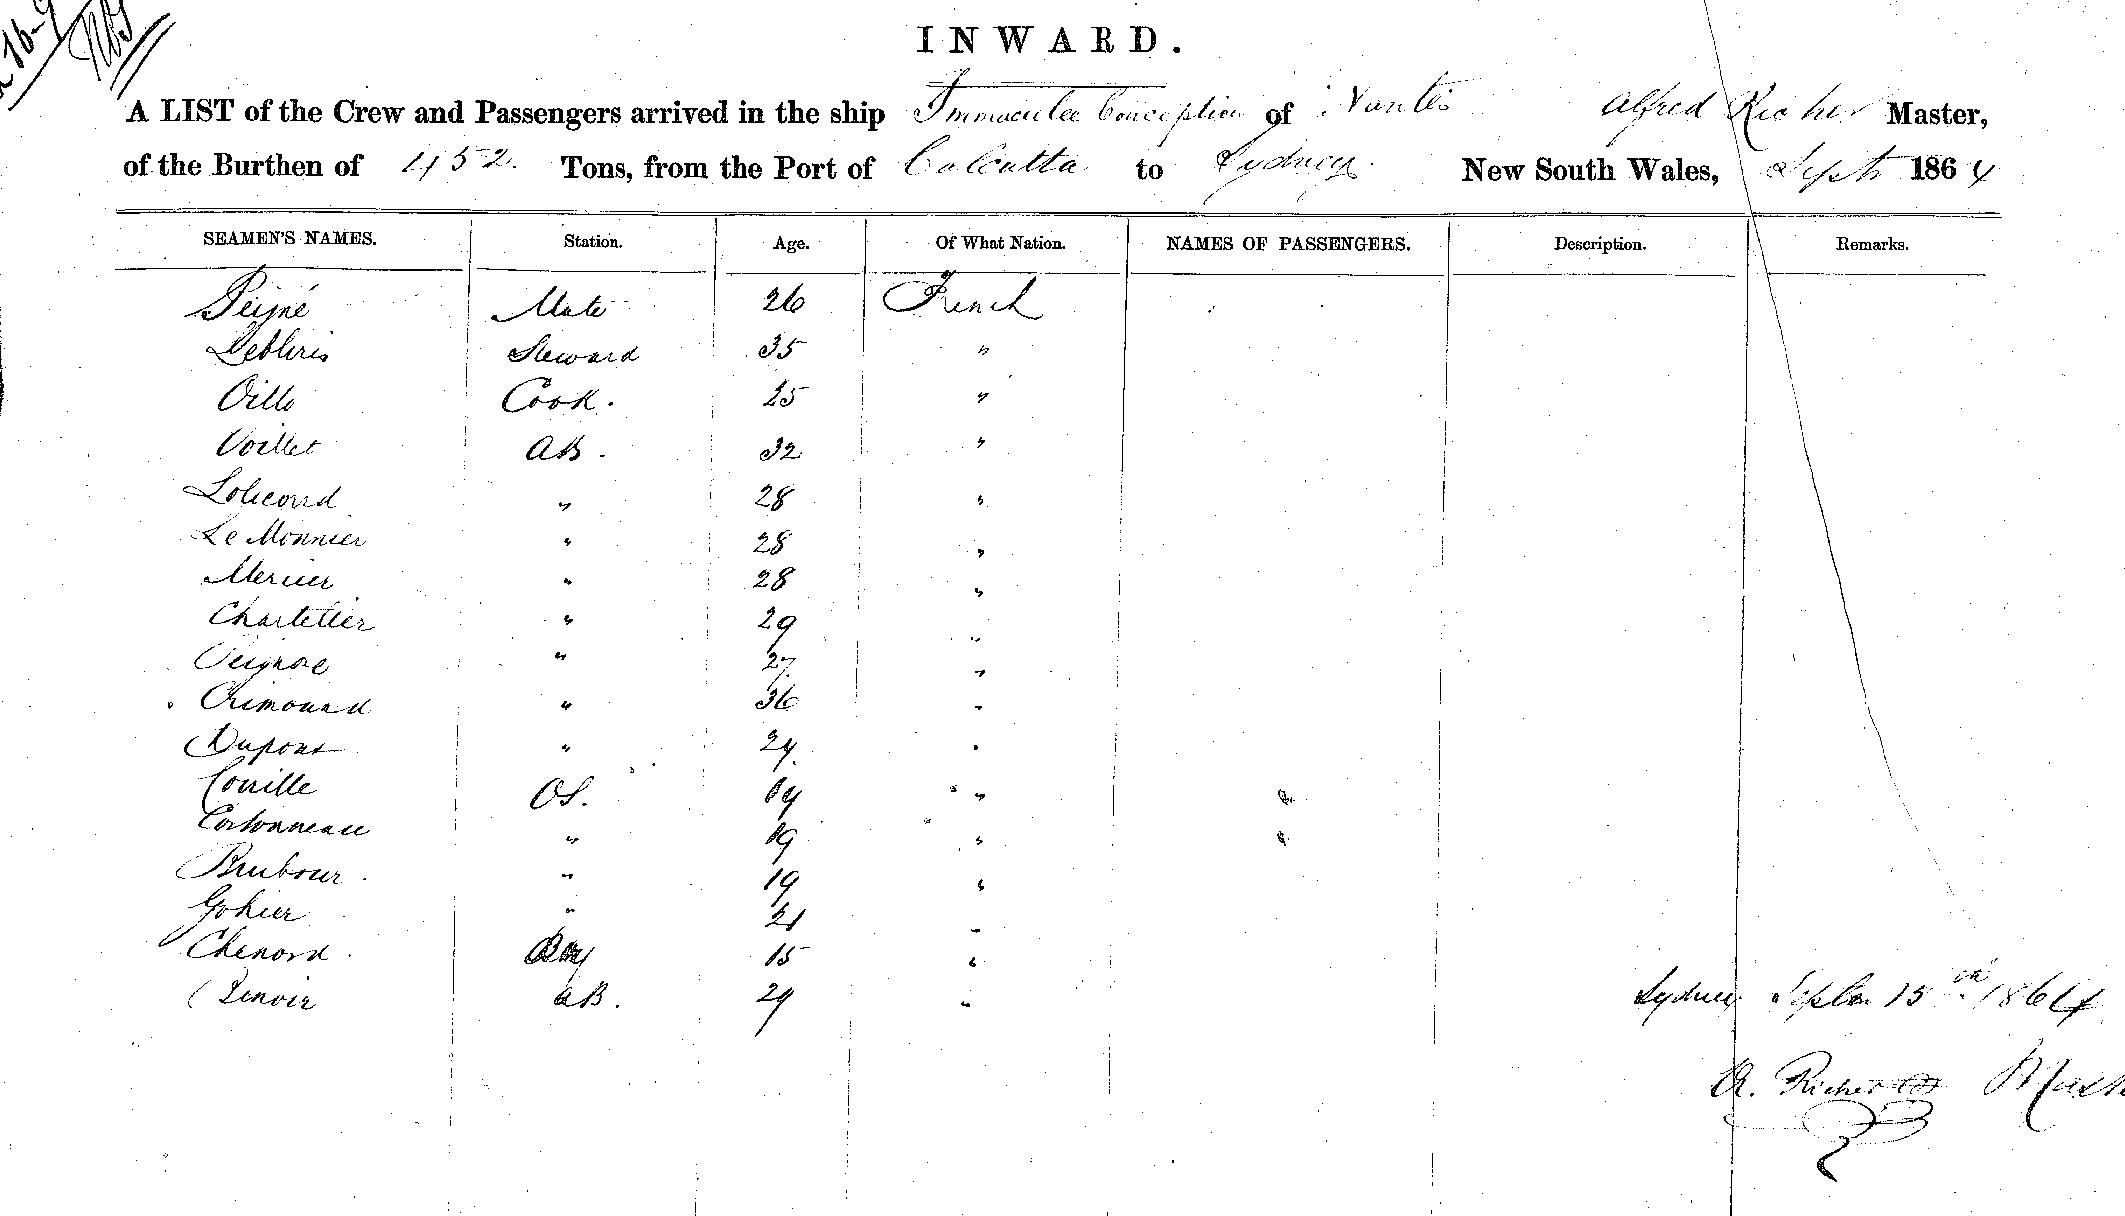 INWARD.
A LIST of the Crew and Passengers arrived in the ship Immaculee Conception of Nantes Alfred Richer Master,
of the Burthen of 452 Tons, from the Port of Calcutta to Sydney New South Wales, Sept 1864
SEAMEN'S NAMES. Station. Age. Of What Nation. NAMES OF PASSENGERS. Description. Remarks.
Peigné Mate 26 French
Steward 35 "
Oillo Cook. 25 "
Voillet AB. 32 "
" 28 "
Le Monnier " 28 "
Mercier " 28 "
Chartetier " 29 "
" 27 "
" 36 "
Dupont " 24 "
Couille OS. 19 "
" 19 "
" 19 "
Gohier " 21 "
Chenord Boy 15 "
Lenoir AB. 29 "
Sydney Septber 15th 1864
A. Richer Master